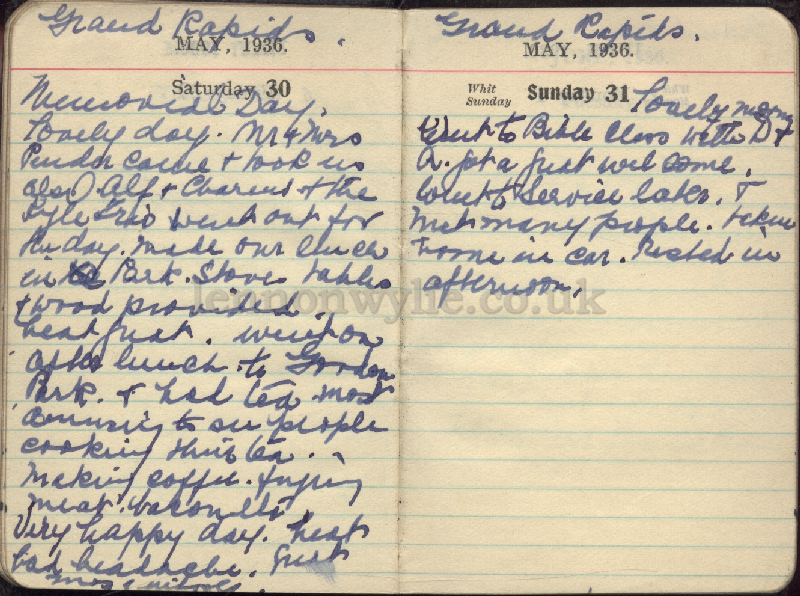 Grand Rapids.
MAY, 1936.
Saturday 30
Memorial Day.
Lovely day. Mr & Mrs
Pender came & took us
also Alf & & the
Kyle trio went out for
the day. Made our lunch
in Park. Stoves tables
& wood provided.
heat great. went on
after lunch to Gordon
Park. & had tea most
amusing to see people
cooking their tea.
making coffee. frying
meat. bacon etc.
Very happy day. heat
bad headache.
Mrs
Grand Rapids.
MAY, 1936.
Whit Sunday
Sunday 31
Lovely morning
Went to Bible Class with D &
A. got a great welcome.
Went to Service later. &
met many people. taken
home in car. Rested in
afternoon.
lennonwylie.co.uk